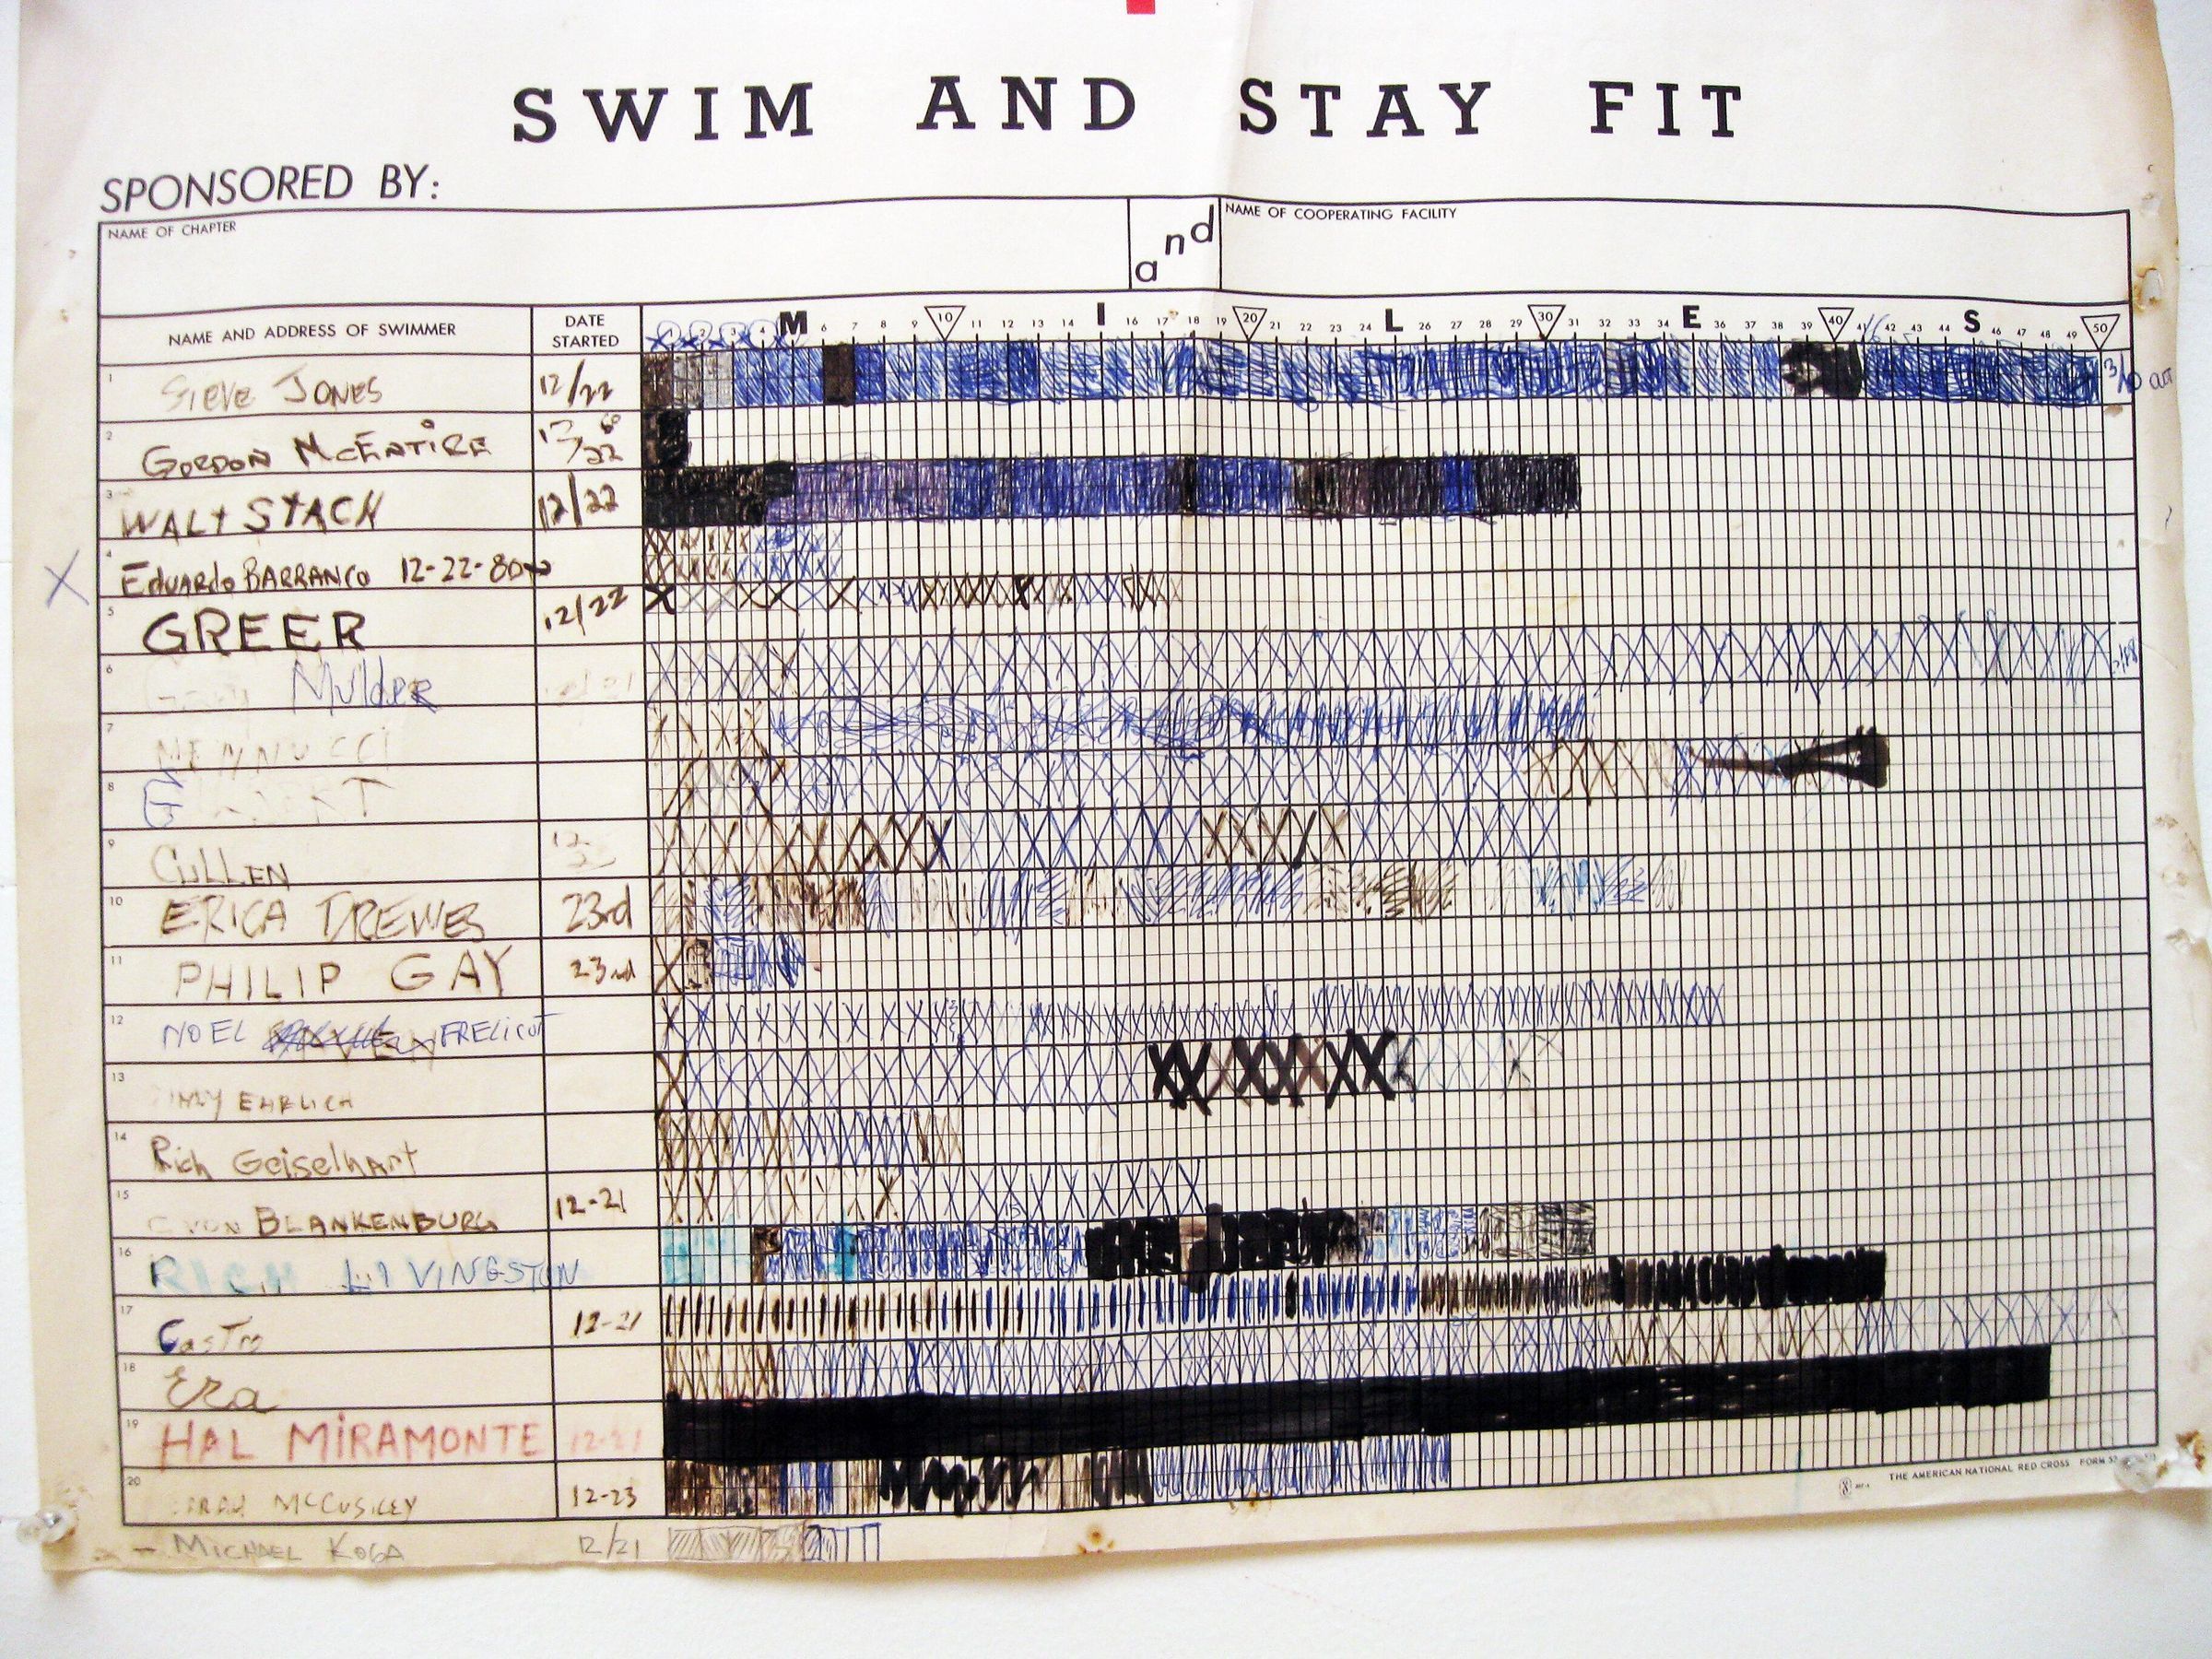 SWIM AND STAY FIT
SPONSORED BY:
NAME OF CHAPTER
and
NAME OF COOPERATING FACILITY
NAME AND ADDRESS OF SWIMMER
DATE STARTED
1 2 3 4 M 6 7 8 9 10 11 12 13 14 I 16 17 18 19 20 21 22 23 24 L 26 27 28 29 30 31 32 33 34 E 36 37 38 39 40 41 42 43 44 S 46 47 48 49 50
1 Steve JONES 12/22
2 GORDON McENTIRE 12/22
3 WALT STACK 12/22
4 Eduardo BARRANCO 12-22-80
X
5 GREER 12/22
6 Mulder
7 MENNUCCI
8
9 CULLEN
10 ERICA DREWES 23rd
11 PHILIP GAY 23rd
12 NOEL FRELICOT
13 EHRLICH
14 Rich Geiselhart
15 VON BLANKENBURG 12-21
16 RICH LIVINGSTON
17 Castro 12-21
18 Era
19 HAL MIRAMONTE 12-21
20 McCUSKEY 12-23
THE AMERICAN NATIONAL RED CROSS FORM
- MICHAEL KOGA 12/21